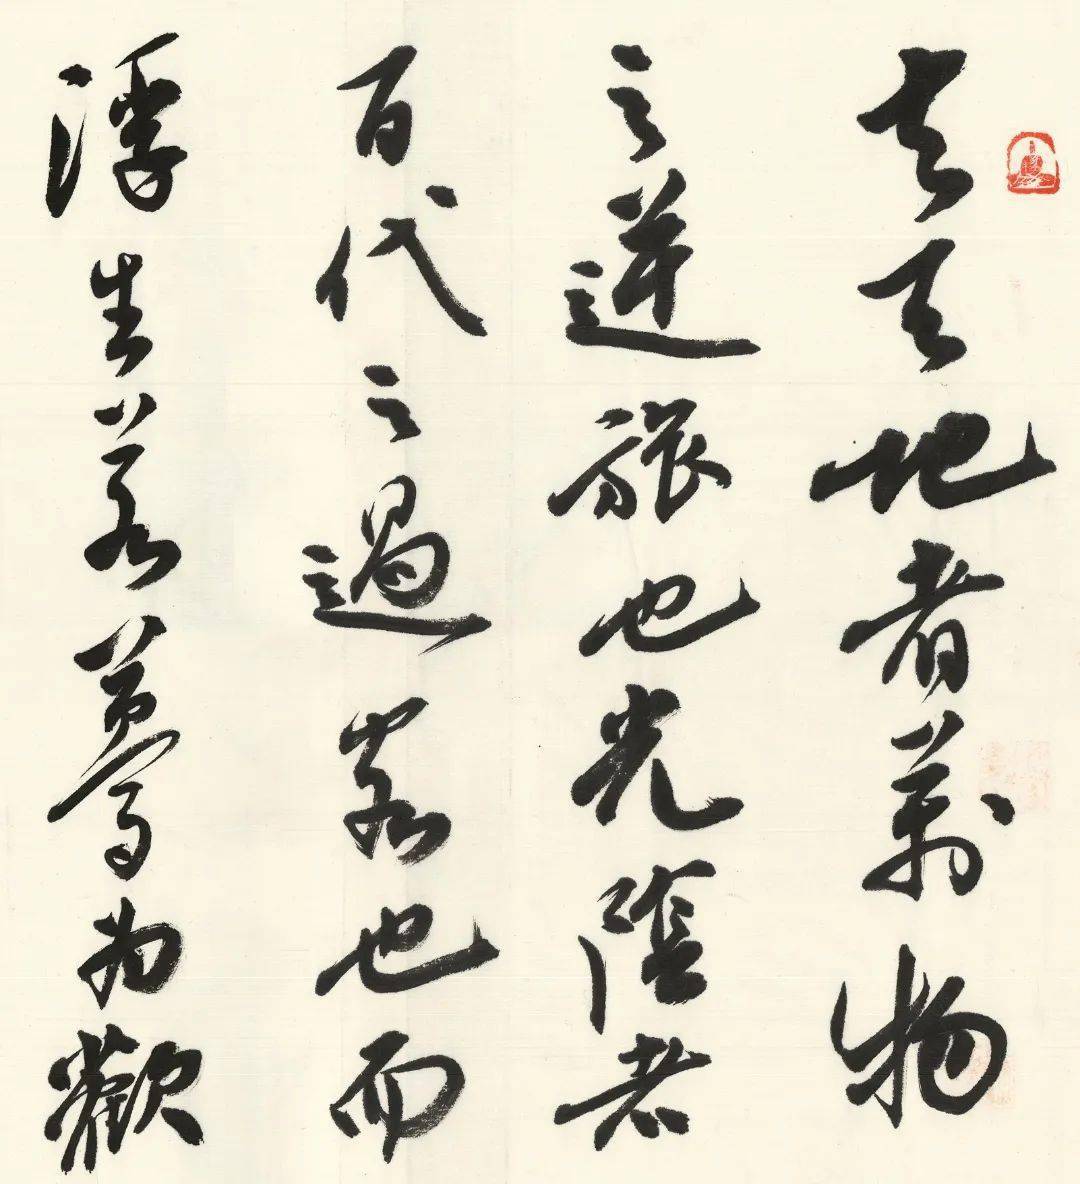 夫天地者萬物
之逆旅也光陰者
百代之過客也而
浮生若夢為歡